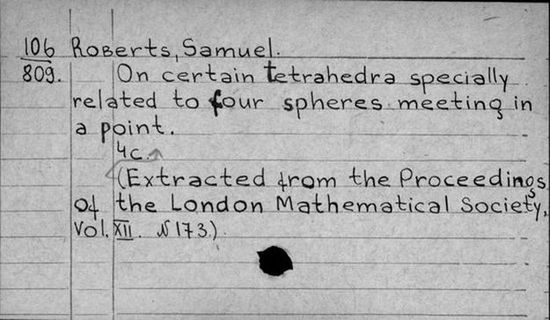 106 Roberts, Samuel.
809. On certain tetrahedra specially
related to four spheres meeting in
a point.
4c.
(Extracted from the Proceedings
of the London Mathematical Society,
Vol. XII. N 173.)